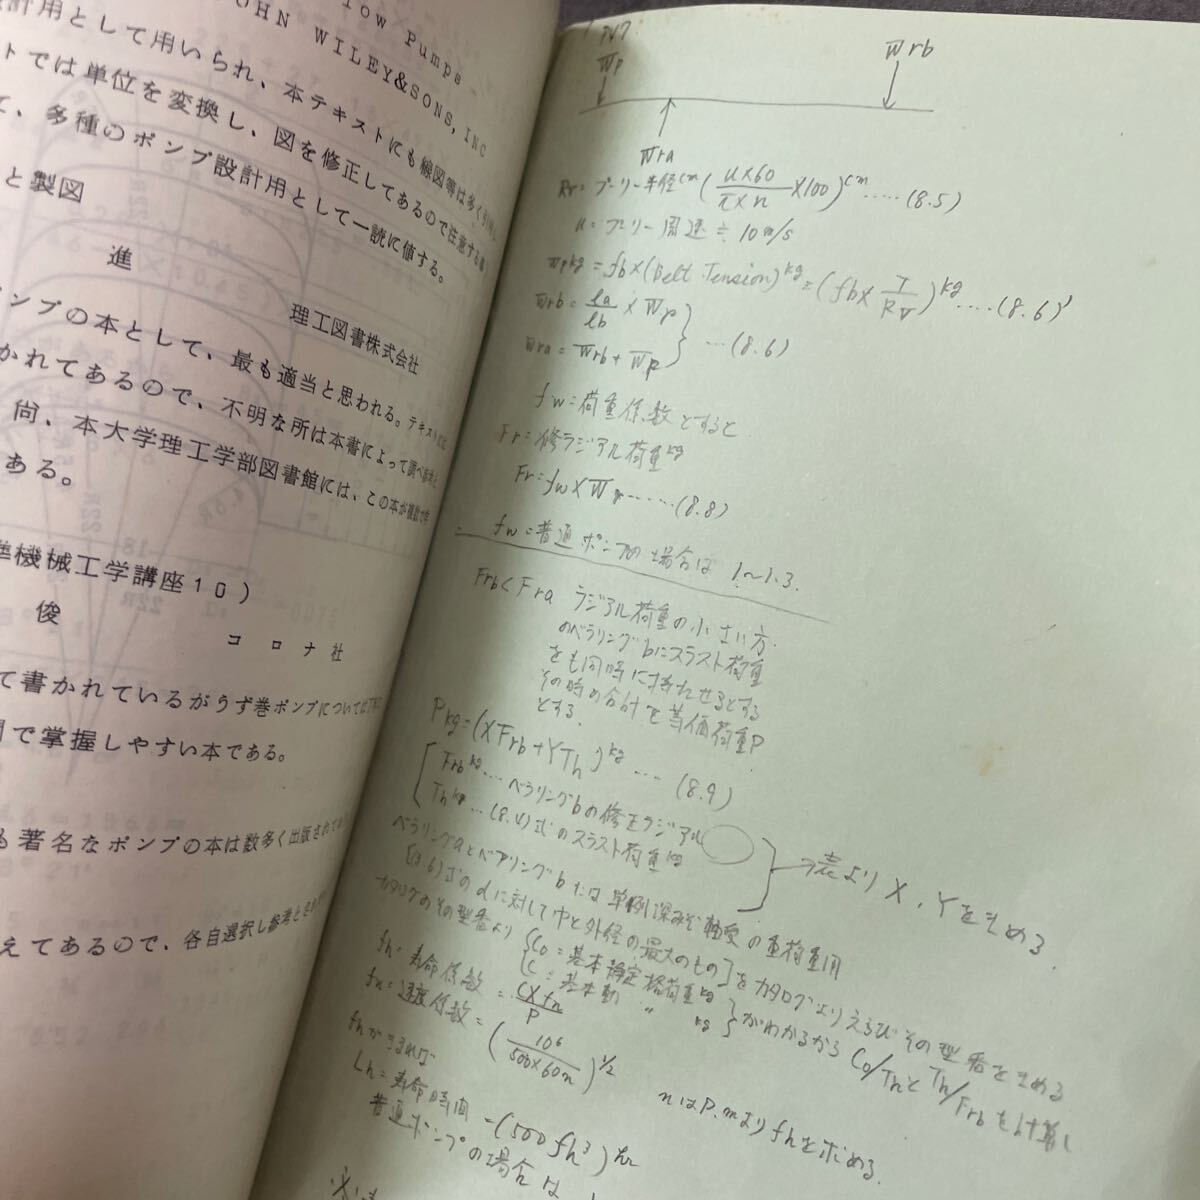 low Pumps
JOHN WILEY&SONS, INC
計用として用いられ、本テキストにも線図等は多く引用し
トでは単位を変換し、図を修正してあるので注意する事
て、多種のポンプ設計用として一読に値する。
と製図
進
理工図書株式会社
ンプの本として、最も適当と思われる。テキスト
かれてあるので、不明な所は本書によって調べ
尚、本大学理工学部図書館には、この本が複数
ある。
準機械工学講座10)
俊
コロナ社
て書かれているがうず巻ポンプについては
間で掌握しやすい本である。
も著名なポンプの本は数多く出版されて
えてあるので、各自選択し参考とされ
Wp
Wrb
Wra
Rr=プーリー半径cm (u×60/π×n ×100)cm ..... (8.5)
u=プーリー周速≒10m/s
Wpkg=fb×(Belt Tension)kg=(fb×T/Rr)kg ....(8.6)'
Wrb=la/lb×Wp
Wra=Wrb+Wp } ...(8.6)
fw=荷重係数とすると
Fr=修ラジアル荷重kg
Fr=fw×Wr......(8.8)
fw=普通ポンプの場合は 1~1.3.
Frb<Fra ラジアル荷重の小さい方
のベラリングbにスラスト荷重
をも同時に持たせるとする
その時の合計を等価荷重P
とする.
Pkg=(XFrb+YTh)kg .... (8.9)
Frbkg...ベラリングbの修正ラジアル
Thkg...(8.4)式のスラスト荷重kg
→表よりX,Yをきめる.
ベラリングaとベアリングbには単例深みぞ軸受の重荷重用
[(3.6)式のdに対して巾と外径の最大のもの]をカタログよりえらびその型番をきめる
カタログのその型番より {C0=基本静定格荷重kg
C=基本動 〃 kg} がわかるから C0/ThとTh/Frbを計算し
fh=寿命係数=C×fn/P
fn=速度係数=(10⁶/500×60n)^1/2
nはP.mよりfhを求める.
fhがきまれば
Lh=寿命時間=(500fh³)hr
普通ポンプの場合は